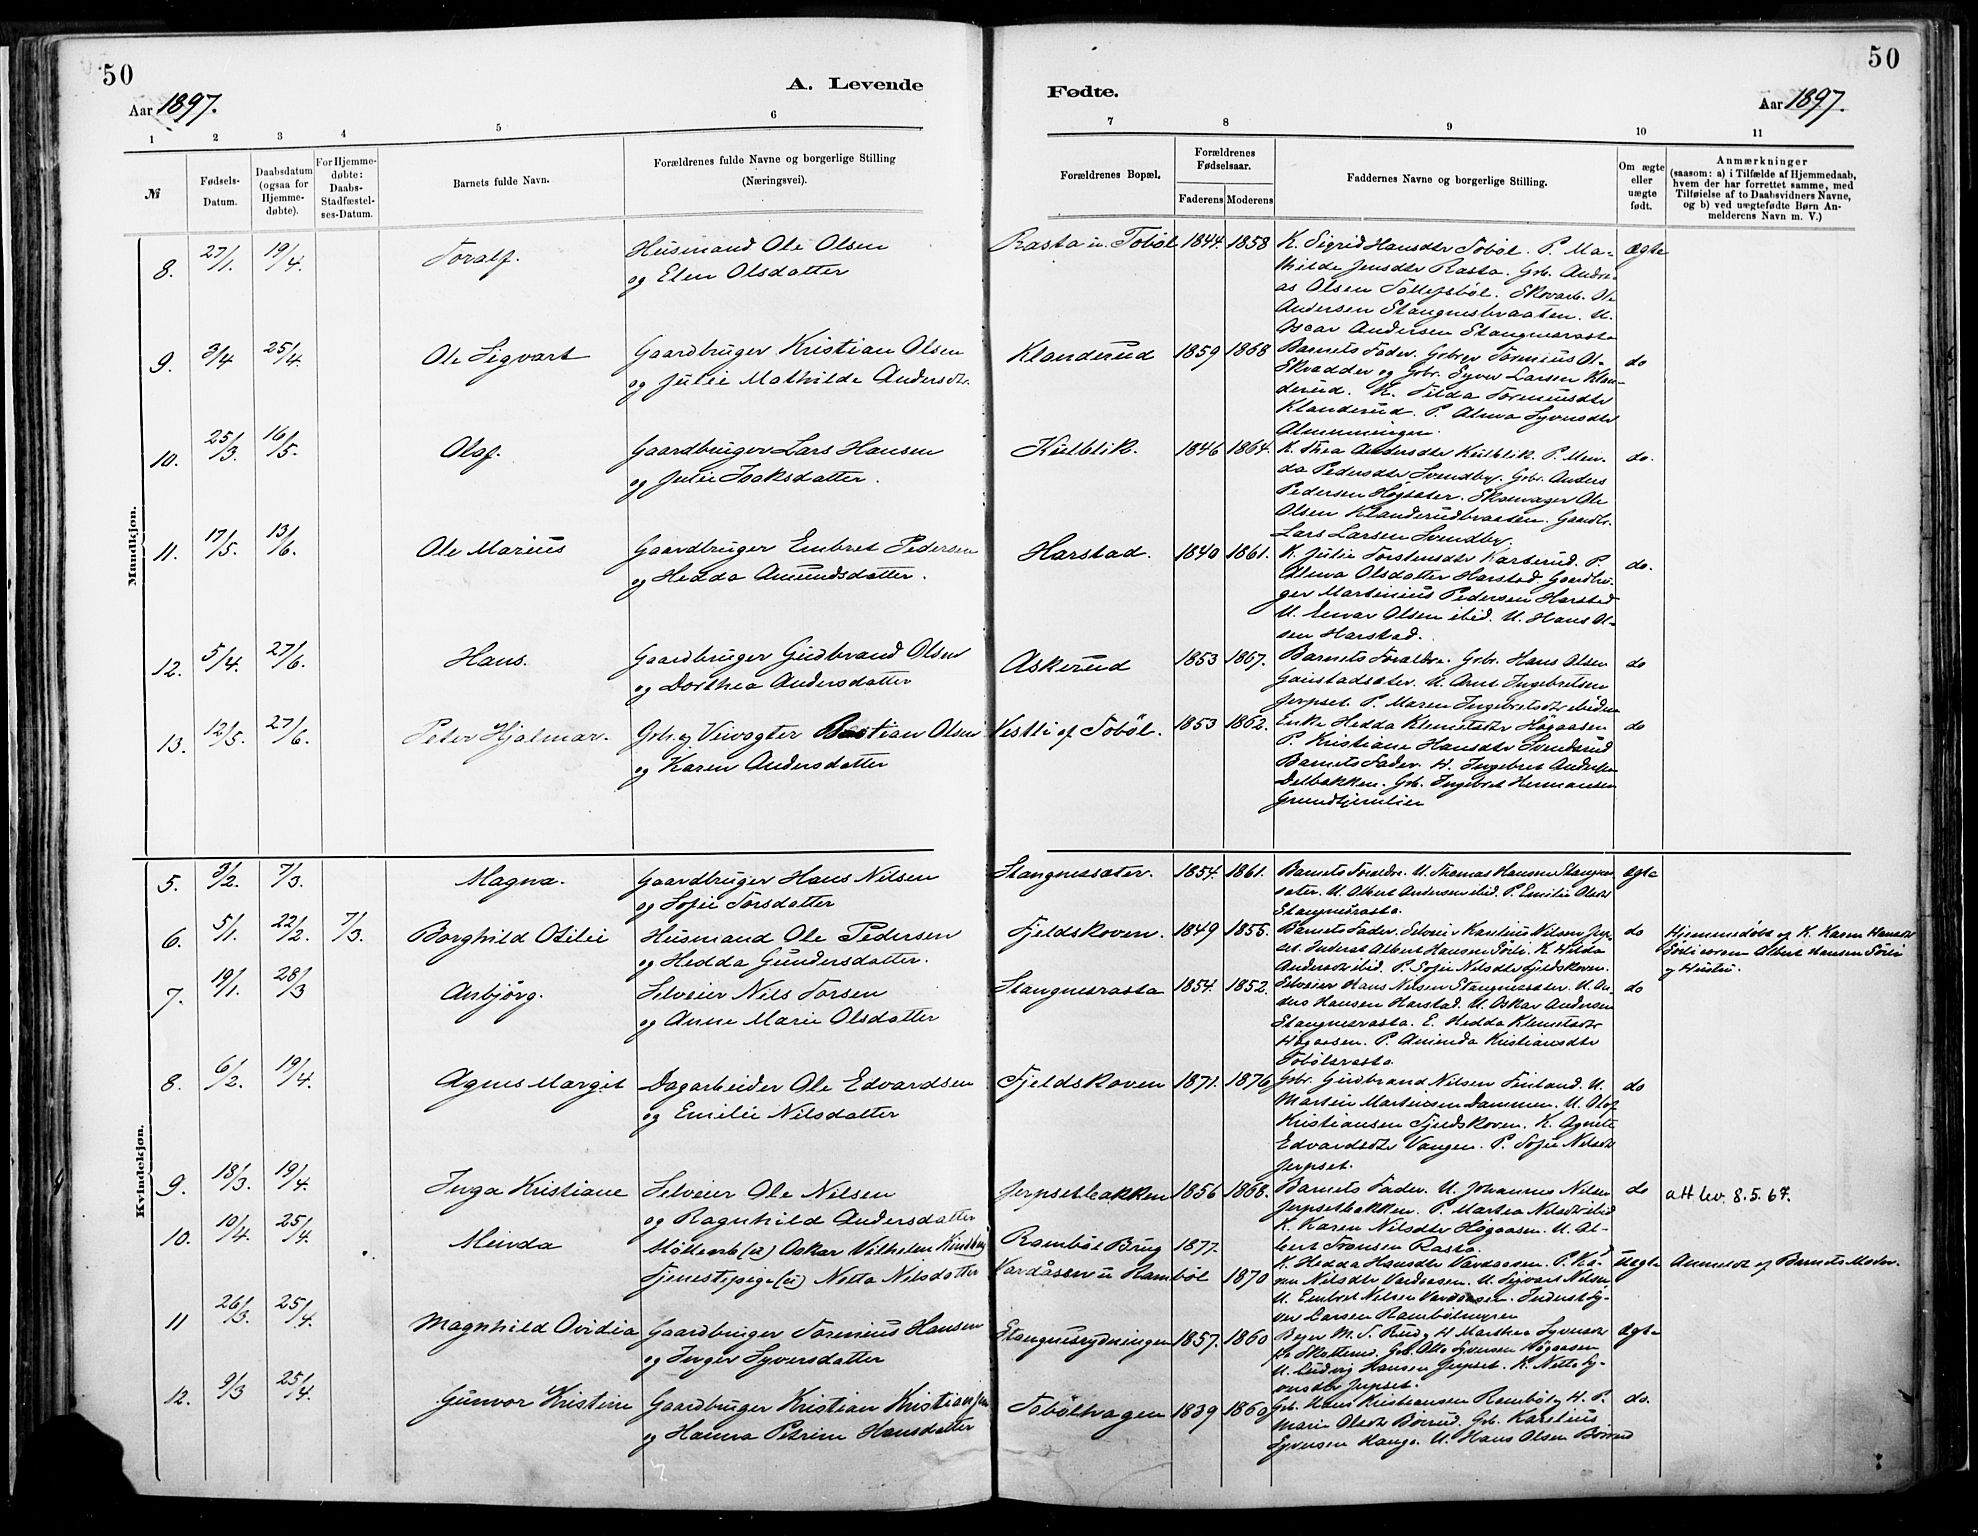 50
50
A. Levende
Fødte.
Aar 1897.
Aar 1897.
1 2 3 4 5 6 7 8 9 10 11
№
Fødsels-
Datum.
Daabsdatum
(ogsaa for
Hjemme-
døbte).
For Hjemme-
døbte:
Daabs-
Stadfæstel-
ses-Datum.
Barnets fulde Navn.
Forældrenes fulde Navne og borgerlige Stilling
(Næringsvei).
Forældrenes Bopæl.
Forældrenes
Fødselsaar.
Faderens Moderens
Faddernes Navne og borgerlige Stilling.
Om ægte
eller
uægte
født.
Anmærkninger
(saasom: a) i Tilfælde af Hjemmedaab,
hvem der har forrettet samme, med
Tilføielse af to Daabsvidners Navne,
og b) ved uægtefødte Børn An-
melderens Navn m. V.)
Mandkjøn.
8. 27/1. 19/4. Toralf. Husmand Ole Olsen
og Elen Olsdatter
Rasta u. Tobøl 1844. 1858 Ægte
K. Sigrid Hansdtr Tobøl. P. Ma-
thilde Jensdtr Rasta. Grb. Andre-
as Olsen Tollefsbøl. Skovarb. Ole
Andersen Stangnesbraaten. U.
Oscar Andersen Stangnesrasta
9. 3/4 25/4. Ole Sigvart Gaardbruger Kristian Olsen
og Julie Mathilde Andersdtr.
Klanderud 1859 1868 do
Barnets Fader. Grbgr Torinius Ols
Skradder og Grbr. Syver Larsen Klan-
derud. K. Tilda Toriniusdtr
Klanderud. P. Alma Syversdtr
Almenningen.
10. 25/3. 16/5. Olaf. Gaardbruger Lars Hansen
og Julie Isaksdatter.
Kulblik. 1846 1864. do.
K. Thea Andersdtr Kulblik. P. Min-
da Pedersdtr Svendby. Grbr. Anders
Pedersen Høgsæter. Skomager Ole
Olsen Klanderudbraaten. Gaardbr.
Lars Larsen Svendby.
11. 17/5. 13/6. Ole Marius Gaardbruger Embret Pedersen
og Hedda Amundsdatter.
Harstad. 1840 1861. do.
K. Julie Torstensdtr Karterud. P.
Alma Olsdatter Harstad. Gaardbru-
ger Martinius Pedersen Harstad
U. Einar Olsen ibid. U. Hans Ol-
sen Harstad.
12. 5/4. 27/6. Hans. Gaardbruger Gudbrand Olsen
og Dorthea Andersdatter
Askerud 1853 1867. do
Barnets Forældre. Grbr. Hans Olsen
Gaustadsæter. U. Arnt Ingebretsen
Jerpset. P. Maren Ingebretsdtr ibidem
13. 12/5. 27/6. Peter Hjalmar. Grb. og Veivogter Bastian Olsen
og Karen Andersdatter
Vestli af Tobøl. 1853 1862. do
Enke Hedda Klemetsdtr Høgaasen
P. Kristiane Hansdtr Svenderud
Barnets Fader. H. Ingebret Andersen
Delbakken. Grb. Ingebret Hermansen
Grundtjernlien
Kvindekjøn.
5. 3/2. 7/3. Magna. Gaardbruger Hans Nilsen
og Sofie Torsdatter
Stangnessæter. 1854. 1861. Ægte
Barnets Forældre. U. Thomas Hansen Stangnes-
sæter. U. Albert Andersen ibid. P. Emilie Olsdtr
Stangnesrasta.
6. 5/1. 22/2. 7/3. Borghild Otilie Husmand Ole Pedersen
og Hedda Gundersdatter.
Fjeldskoven. 1849 1855. do
Barnets Fader. Selveier Karelius Nilsen Jerp-
set. Inderst Albert Hansen Sørli. K. Hilda
Andersdtr ibid. P. Sofie Nilsdtr Fjeldskoven.
Hjemmedøbt af K. Karen Hansdtr
Sørli coram Albert Hansen Sørli
og Hustru.
7. 19/1. 28/3 Anbjørg. Selveier Nils Torsen
og Anne Marie Olsdatter
Stangnesrasta 1854. 1852. do
Selveier Hans Nilsen Stangnessæter. U. An-
ders Hansen Harstad. U. Oskar Andersen
Stangnesrasta. E. Hedda Klemetsdtr
Høgaasen. P. Aminda Kristiansdtr
Tobølsrasta.
8. 6/2. 19/4. Agnes Margit Dagarbeider Ole Edvardsen
og Emilie Nilsdatter
Fjeldskoven 1871. 1876 do
Grbr. Gudbrand Nilsen Finland. U.
Martin Martinsen Dammen. U. Olaf
Kristiansen Fjeldskoven. K. Agnete
Edvardsdtr Vangen. P. Sofie Nilsdtr
Jerpset.
9. 18/3. 19/4. Inga Kristiane Selveier Ole Nilsen
og Ragnhild Andersdatter
Jerpsetbakken 1856 1868. do att lev. 8.5.67.
Barnets Fader. U. Johannes Nilsen
Jerpsetbakken. P. Martea Nilsdtr ibid
K. Karen Nilsdtr Høgaasen. U. Al-
bert Fransen Rasta.
10. 10/4. 25/4. Minda Mølleearb (u) Oskar Vilhelm Lindberg
Tjenestepige (u) Netta Nilsdatter
Rambøl Brug 1877.
Vardåsen u Rambøl 1870 uægte Anmeldt af Barnets Moder.
K. Hedda Hansdtr Vardaasen. P. Ka-
ren Nilsdtr Vardaasen. U. Sigvart Nilsen
U. Embret Nilsen Vardaasen. Inderst Sy-
ver Larsen Rambølmyren
11 26/3. 25/4. Magnhild Ovidia Gaardbruger Torinius Hansen
og Inger Syversdatter
Stangnesrydningen 1857. 1860 Ægte
Beyer M. T. Ruud og H. Marthea Syversdtr
fra Skotterud. Grb. Otto Syversen Høgaasen
U. Ludvig Hansen Jerpset. K. Netta Sy-
versdtr Jerpset.
12. 9/3 25/4. Gunvor Kristine Gaardbruger Kristian Kristiansen
og Hanna Petrine Hansdatter
Tobølhagen 1839 1860 do.
Grb. Hans Kristiansen Rambøl og H. P.
Marie Olsdtr Børrud. Grb. Karelius
Syversen Hauge. U. Hans Olsen Børrud